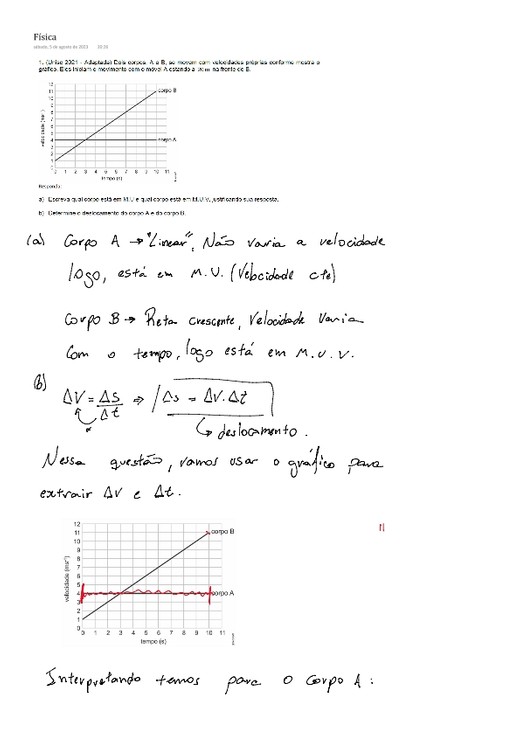 Física
sábado, 5 de agosto de 2023
1. (Unitau 2021 - Adaptada) Dois corpos, A e B, se movem com velocidades próprias conforme mostra o
gráfico. Eles iniciam o movimento com o móvel A estando a na frente de B.
12
11
10
9
8
7
6
5
4
3
2
1
0
velocidade (ms⁻¹)
corpo B
corpo A
0 1 2 3 4 5 6 7 8 9 10 11
tempo (s)
Responda:
a) Escreva qual corpo está em M.U e qual corpo está em M.U.V, justificando sua resposta.
b) Determine o deslocamento do corpo A e do corpo B.
(a) Corpo A → "Linear", Não varia a velocidade
logo, está em M.U. (Velocidade cte)
Corpo B → Reta crescente, Velocidade Varia
Com o tempo, logo está em M.U.V.
(b)
ΔV = ΔS/Δt ⇒ Δs = ΔV.Δt
↳ deslocamento.
Nessa questão, vamos usar o gráfico para
extrair ΔV e Δt.
12
11
10
9
8
7
6
5
4
3
2
1
0
velocidade (ms⁻¹)
corpo B
corpo A
0 1 2 3 4 5 6 7 8 9 10 11
tempo (s)
Interpretando temos para o Corpo A: